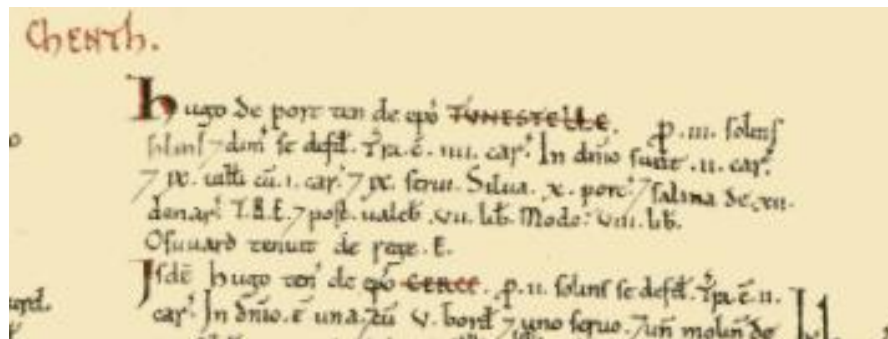 Chenth.
Hugo de port ten de epo TUNESTELLE. p. iii. solins
solins 7 dim se defd. Tra. e. iiii. car. In dnio sunt. ii. car.
7 ix. uilli cu. i. car. 7 ix. serui. Silua. x. porc. 7 salina de. xii.
denar. T.R.E. 7 post ualeb. vii. lib. Modo: viii. lib.
Osuuard tenuit de rege. E.
Isde hugo ten de epo CERCE. p. ii. solins se defd. Tra. e. ii.
car. In dnio. e una. 7 cu v. bord 7 uno seruo. 7 un molin de